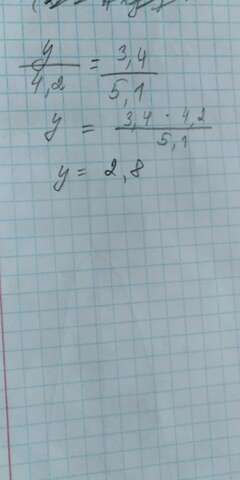 y/4,2 = 3,4/5,1
y = 3,4 · 4,2/5,1
y = 2,8